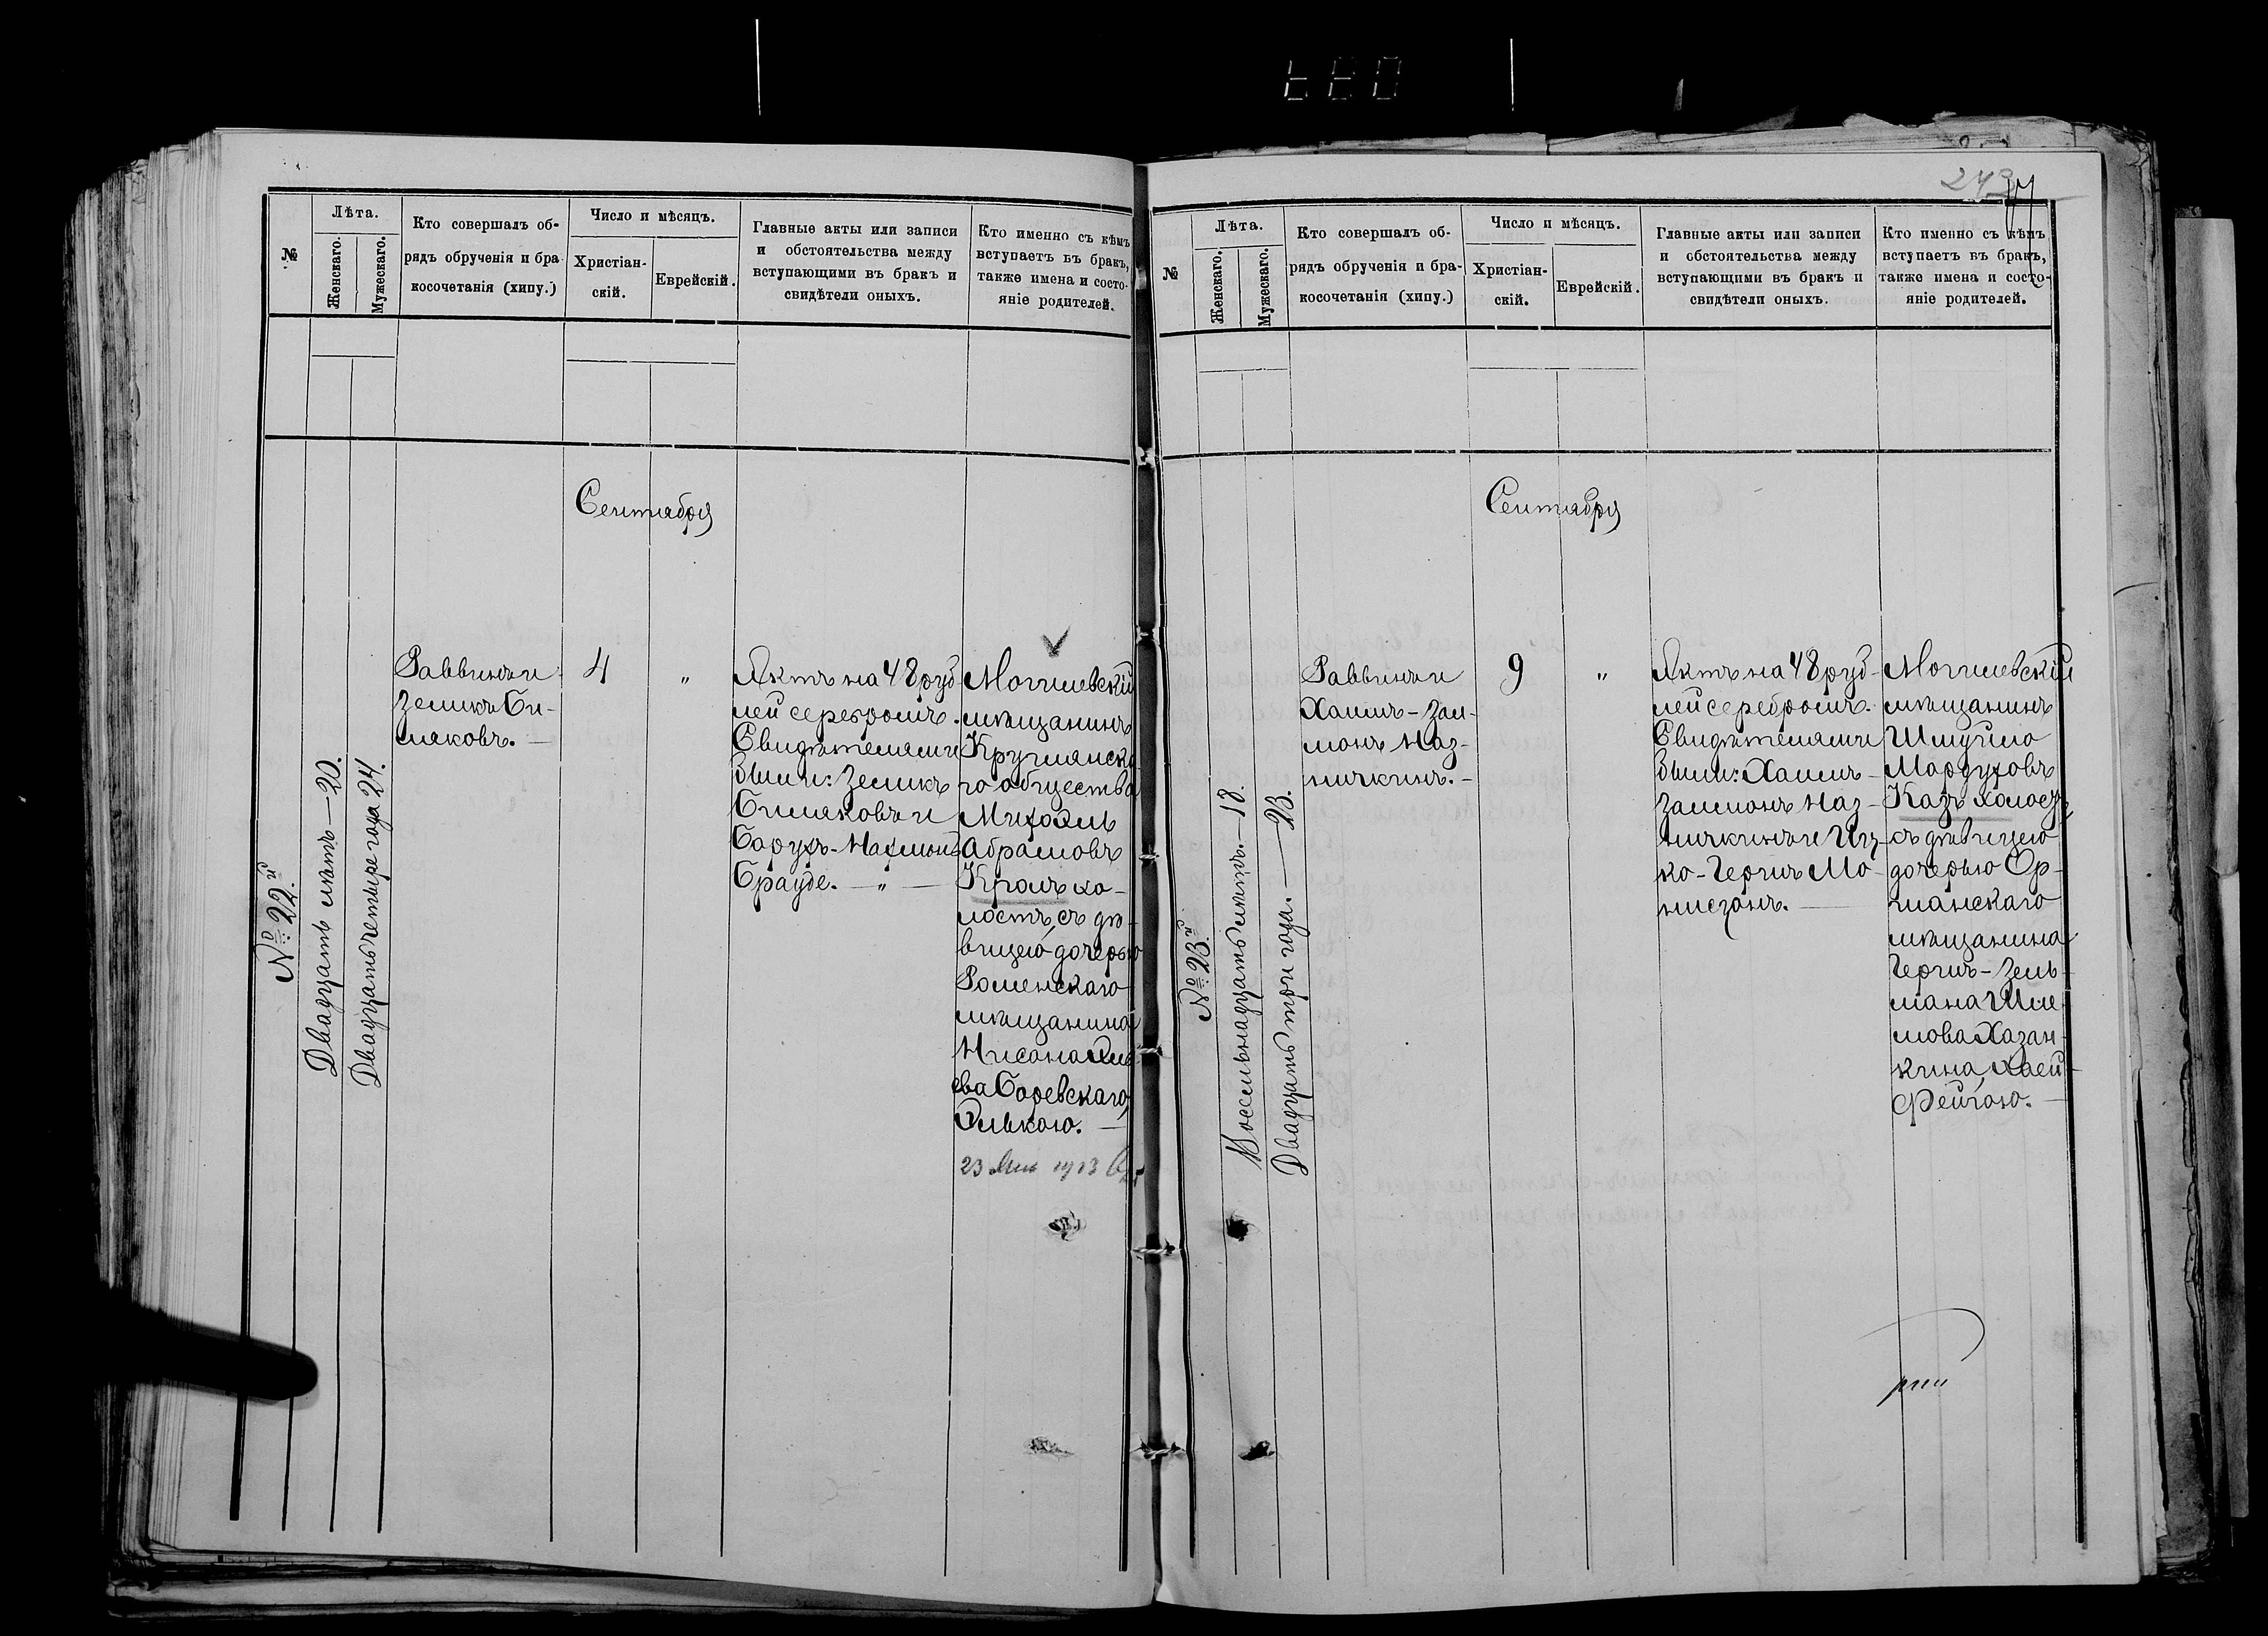 №
Лѣта.
Женскаго.
Мужескаго.
Кто совершалъ об-
рядъ обрученія и бра
косочетанія (хипу.)
Число и мѣсяцъ.
Христіан-
скій.
Еврейскій.
Главные акты или записи
и обстоятельства между
вступающими въ бракъ и
свидѣтели оныхъ.
Кто именно съ кѣмъ
вступаетъ въ бракъ,
также имена и состо-
яніе родителей.
Сентября
№ 22й
Двадцать лѣтъ — 20.
Двадцать четыре года 24.
Раввинъ и
Зеликъ Си-
маковъ. —
4
„
Актъ на 48 руб-
лей серебромъ.
Свидѣтелями
были: Зеликъ
Симаковъ и
Борухъ-Нахмонъ
Брауде. — „ —
Могилевскій
мѣщанинъ
Круглянска-
го общества
Михаэль
Абрамовъ
Кролъ хо-
лостъ, съ дѣ-
вицею, дочерью
Роменскаго
мѣщанина
Нисана
Боревскаго,
Элькою. —
23 1913
243
№
Лѣта.
Женскаго.
Мужескаго.
Кто совершалъ об-
рядъ обрученія и бра-
косочетанія (хипу.)
Число и мѣсяцъ.
Христіан-
скій.
Еврейскій.
Главные акты или записи
и обстоятельства между
вступающими въ бракъ и
свидѣтели оныхъ.
Кто именно съ кѣмъ
вступаетъ въ бракъ,
также имена и состо-
яніе родителей.
Сентября
№ 23й
Восемьнадцать лѣтъ. — 18.
Двадцать три года. — 23.
Раввинъ и
Хаимъ-Зал-
монъ Наз-
ничкинъ. —
9
„
Актъ на 48 руб-
лей серебромъ.
Свидѣтелями
были: Хаимъ-
Залмонъ Наз-
ничкинъ и Иц-
ко-Гершъ Мо-
нисзонъ. —
Могилевскій
мѣщанинъ
Шмуйло
Мордуховъ
Кацъ холостъ,
съ дѣвицею
дочерью Ор-
шанскаго
мѣщанина
Герша-Зель-
мана Шле-
мова Хазан-
кина, Хаей-
Фейгою. —